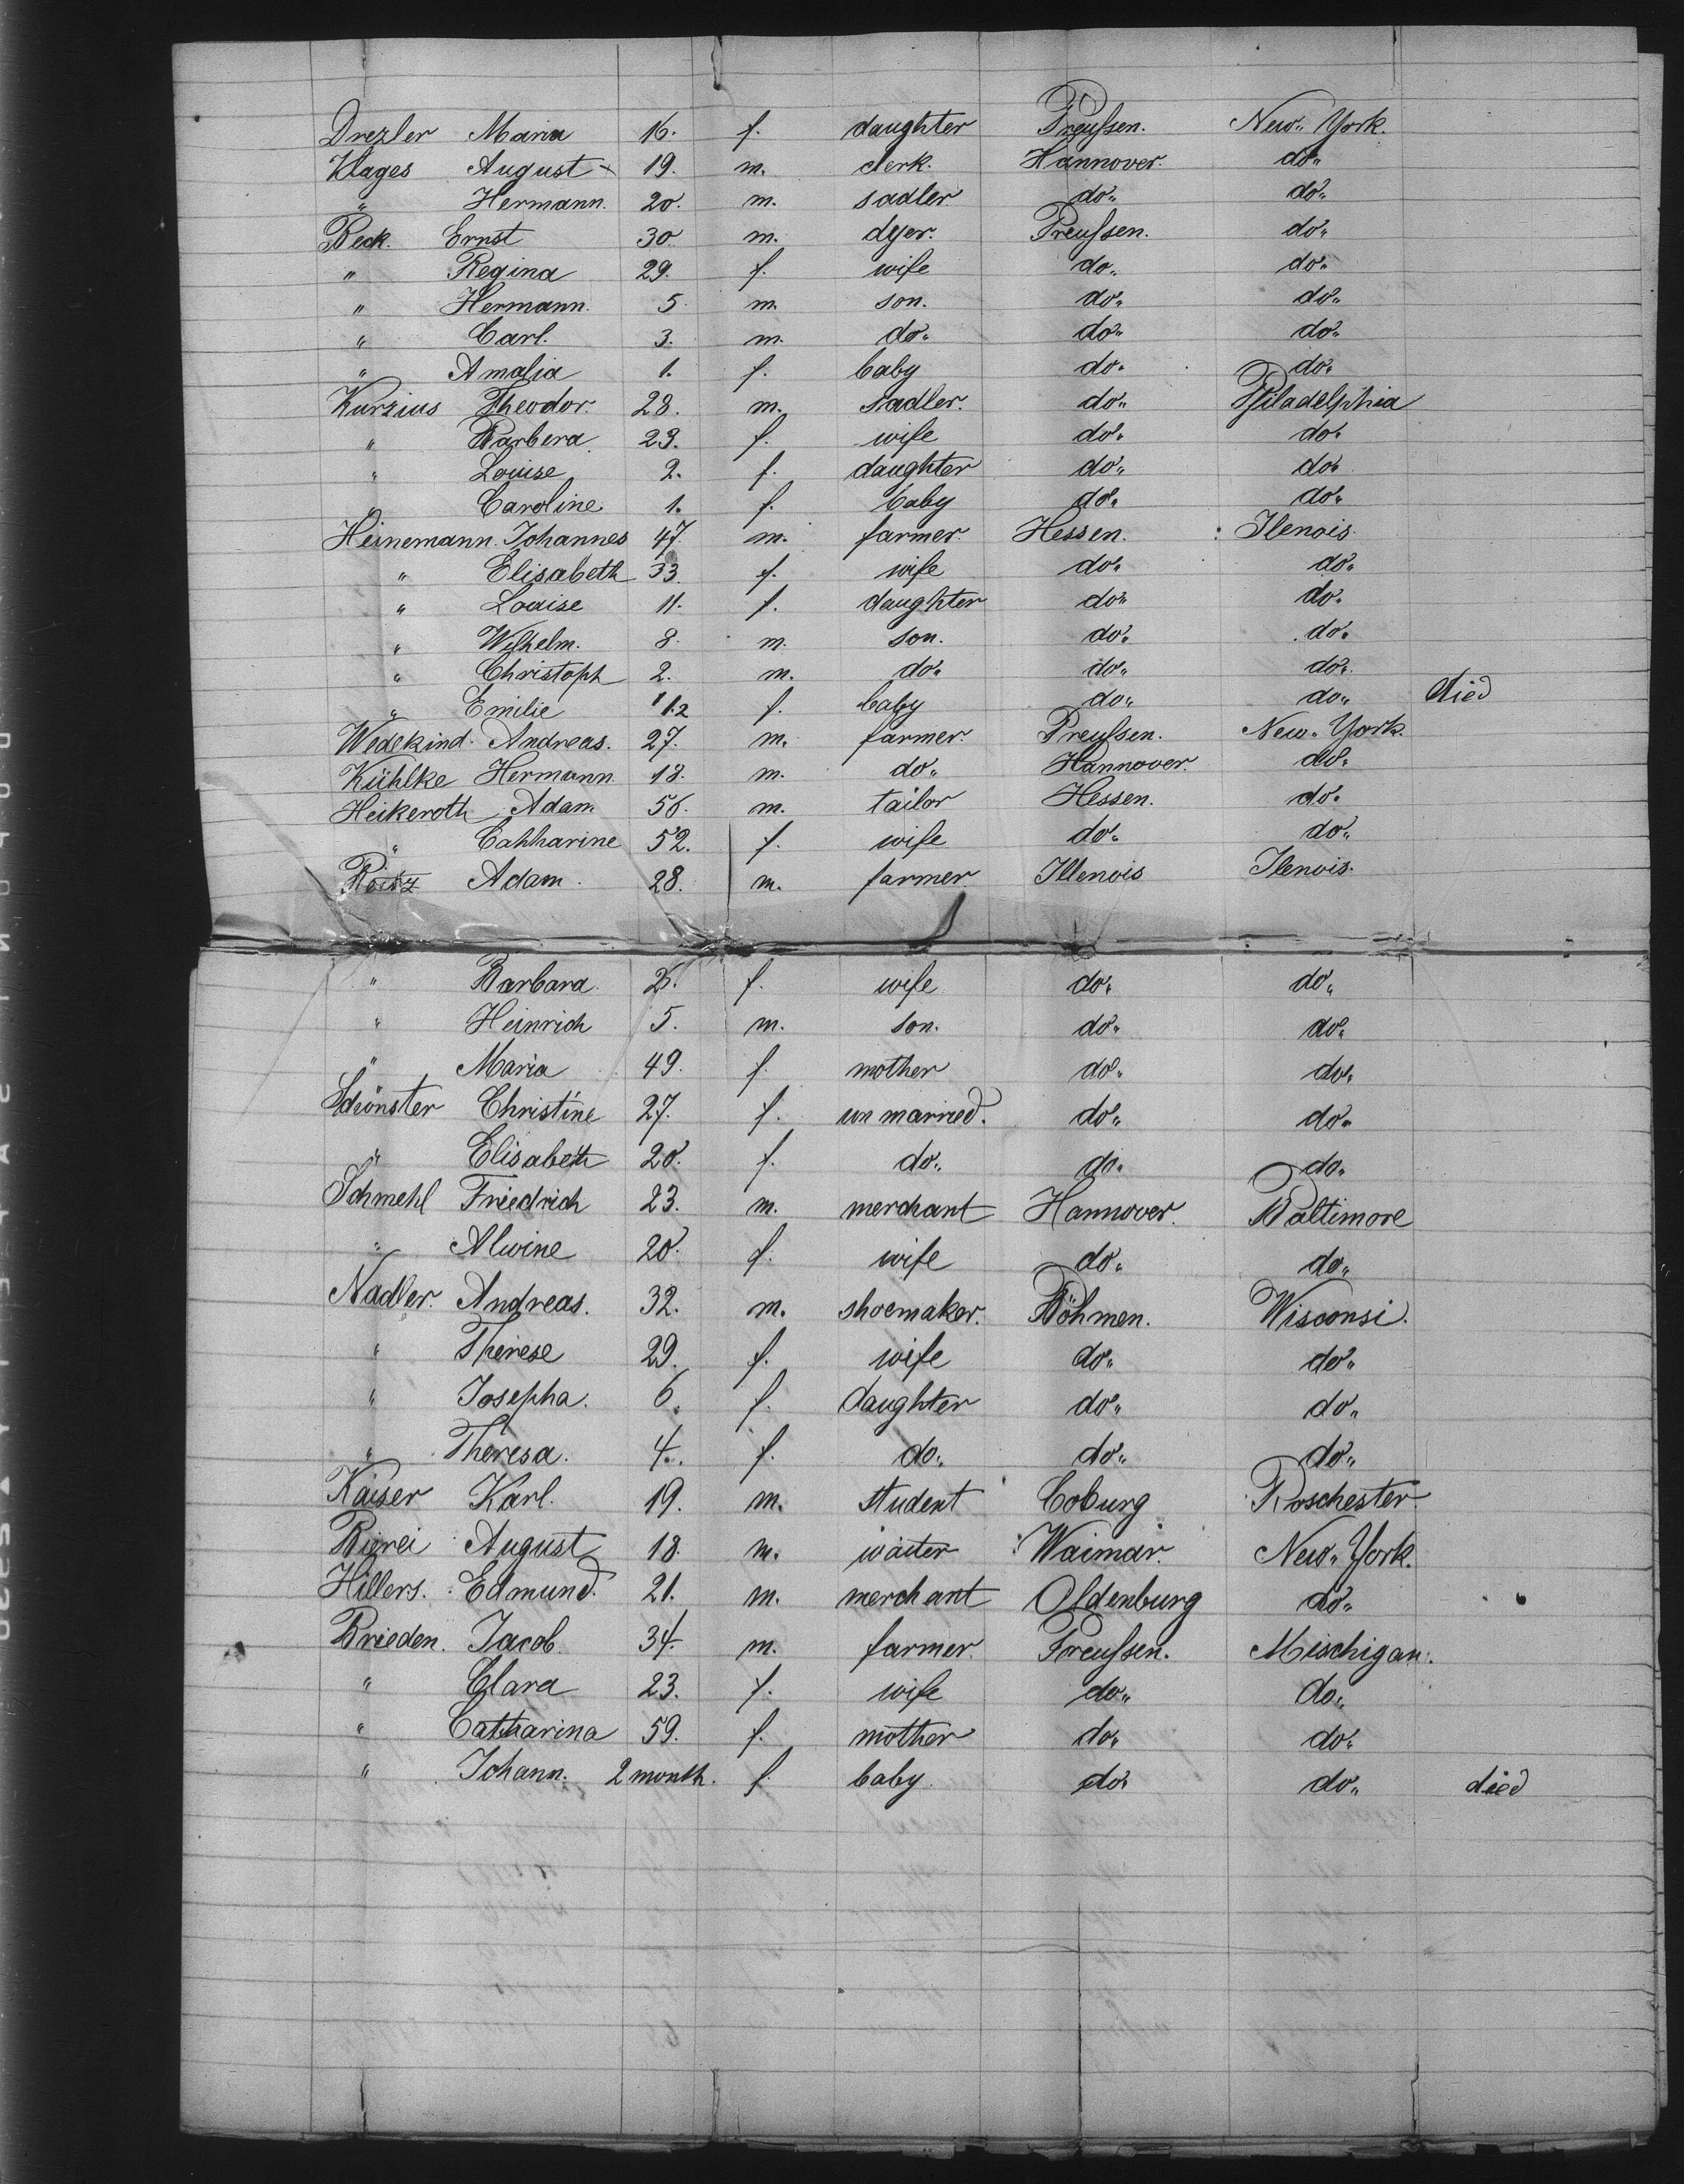 Drezler Maria 16. f. daughter Preußen. New York.
Klages August 19. m. clerk. Hannover. do"
" Hermann. 20. m. sadler do" do"
Beck. Ernst 30. m. dyer. Preußen. do"
" Regina 29. f. wife do" do"
" Hermann. 5 m. son. do" do"
" Carl. 3. m. do" do" do"
" Amalia 1. f. baby do" do"
Kurzius Theodor. 28. m. sadler. do" Philadelphia
" Barbera 23. f. wife do" do"
" Louise 2. f. daughter do" do"
" Caroline 1. f. baby do" do"
Heinemann. Johannes 47. m. farmer. Hessen. Ilenois.
" Elisabeth 33. f. wife do" do"
" Louise 11. f. daughter do" do"
" Wilhelm. 8. m. son. do" do"
" Christoph 2. m. do" do" do"
" Emilie f. baby do" do" died
Wedekind. Andreas. 27. m. farmer. Preußen. New York.
Kühlke Hermann. 18. m. do" Hannover. do"
Heikeroth Adam 56. m. tailor Hessen. do"
" Cahharine 52. f. wife do" do"
Adam. 28. m. farmer. Illenois Ilenois.
" Barbara. f. wife do" do"
" Heinrich 5. m. son. do" do"
" Maria 49. f. mother do" do"
Schönster Christine 27. f. un married. do" do"
" Elisabeth 20. f. do" do" do"
Schmehl Friedrich 23. m. merchant Hannover. Baltimore
" Alwine 20. f. wife do" do"
Nadler. Andreas. 32. m. shoemaker. Böhmen. Wisconsi.
" Therese 29. f. wife do" do"
" Josepha. 6. f. daughter do" do"
" Theresa. 4. f. do" do" do"
Kaiser Karl. 19. m. student Coburg Roschester.
August 18. m. waiter Waimar. New York.
Hillers. Edmund. 21. m. merchant Oldenburg do"
Brieden. Jacob. 34. m. farmer. Preußen. Mischigan.
" Clara 23. f. wife do" do"
" Catharina 59. f. mother do" do"
" Johann. 2 month. f. baby. do" do" died